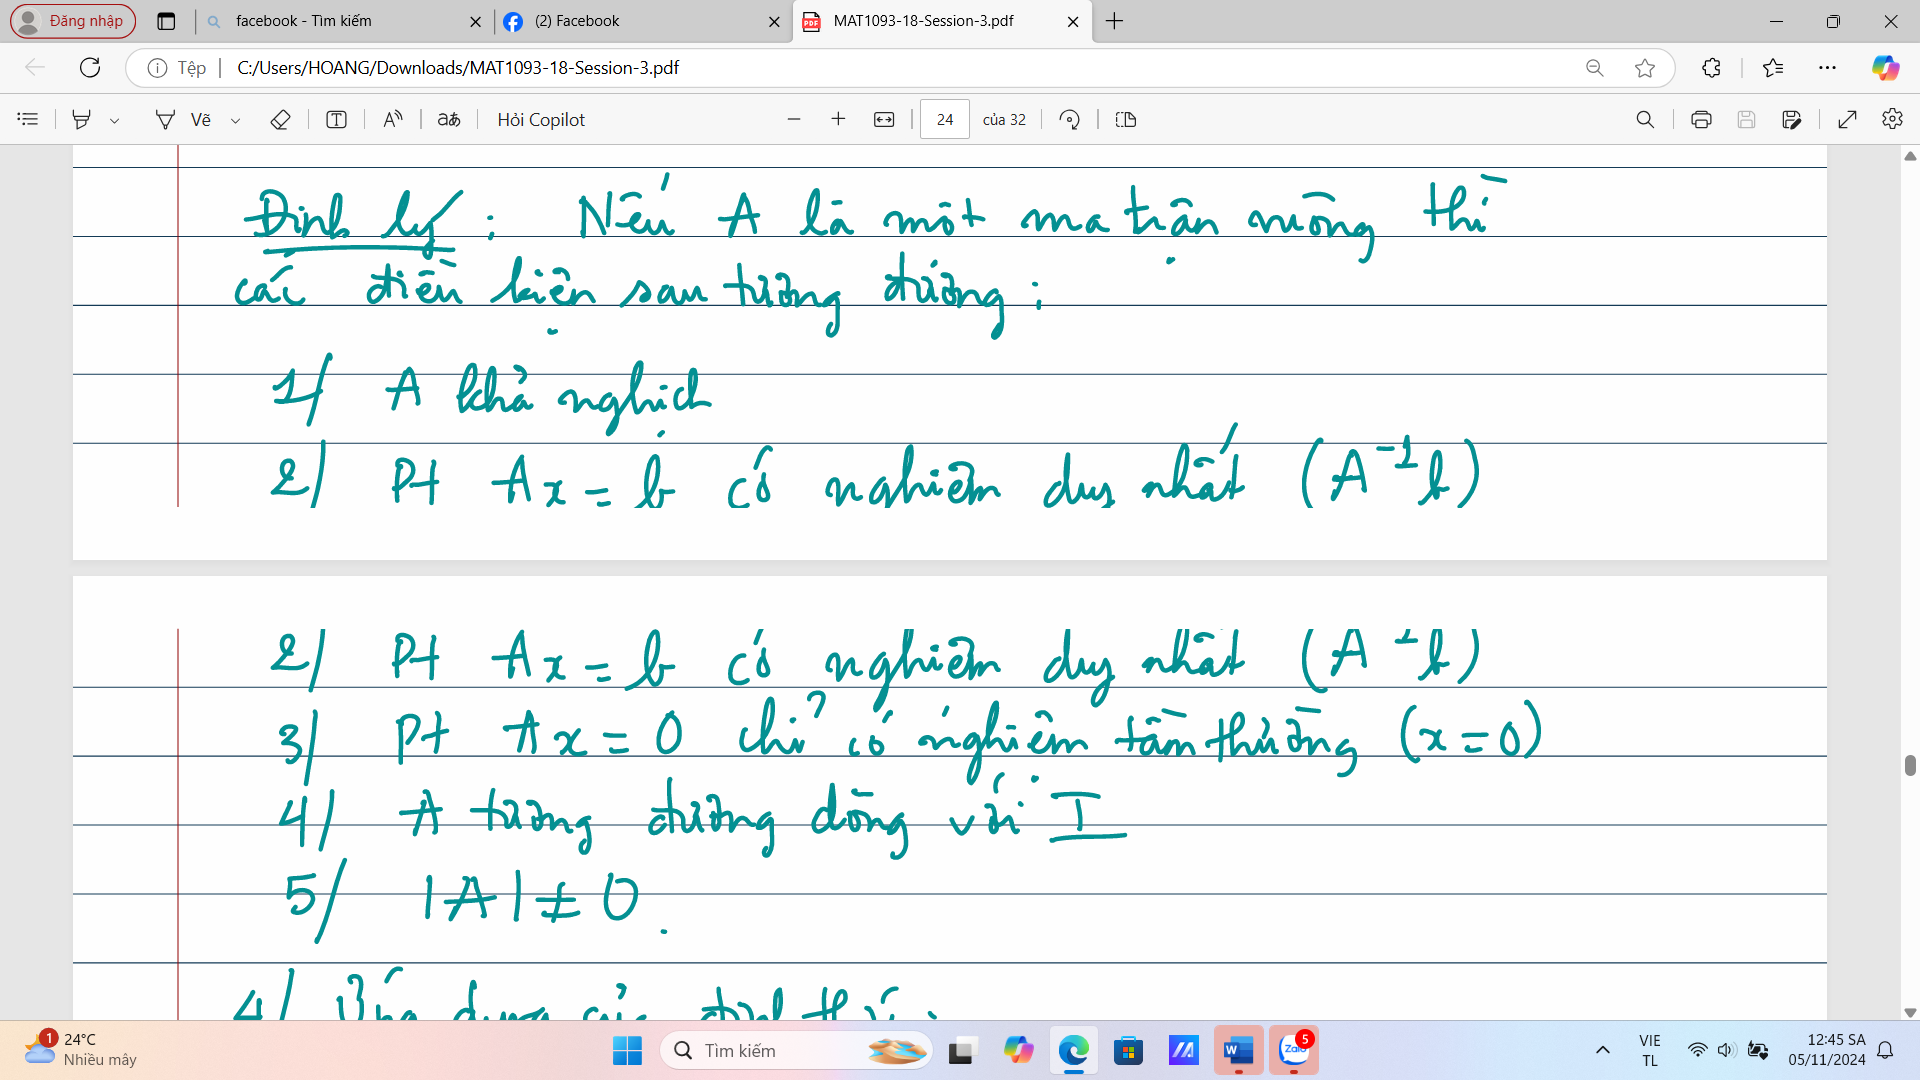 Đăng nhập
facebook - Tìm kiếm
(2) Facebook
MAT1093-18-Session-3.pdf
Tệp
C:/Users/HOANG/Downloads/MAT1093-18-Session-3.pdf
Vẽ
Hỏi Copilot
24
của 32
Định lý : Nếu A là một ma trận vuông thì
các điều kiện sau tương đương :
1/ A khả nghịch
2/ Pt Ax = b có nghiệm duy nhất (A⁻¹b)
2/ Pt Ax = b có nghiệm duy nhất (A⁻¹b)
3/ Pt Ax = 0 chỉ có nghiệm tầm thường (x = 0)
4/ A tương đương dòng với I
5/ |A| ≠ 0.
4/ Ứng dụng của định thức :
1
24°C
Nhiều mây
Tìm kiếm
Zalo
5
VIE
TL
12:45 SA
05/11/2024